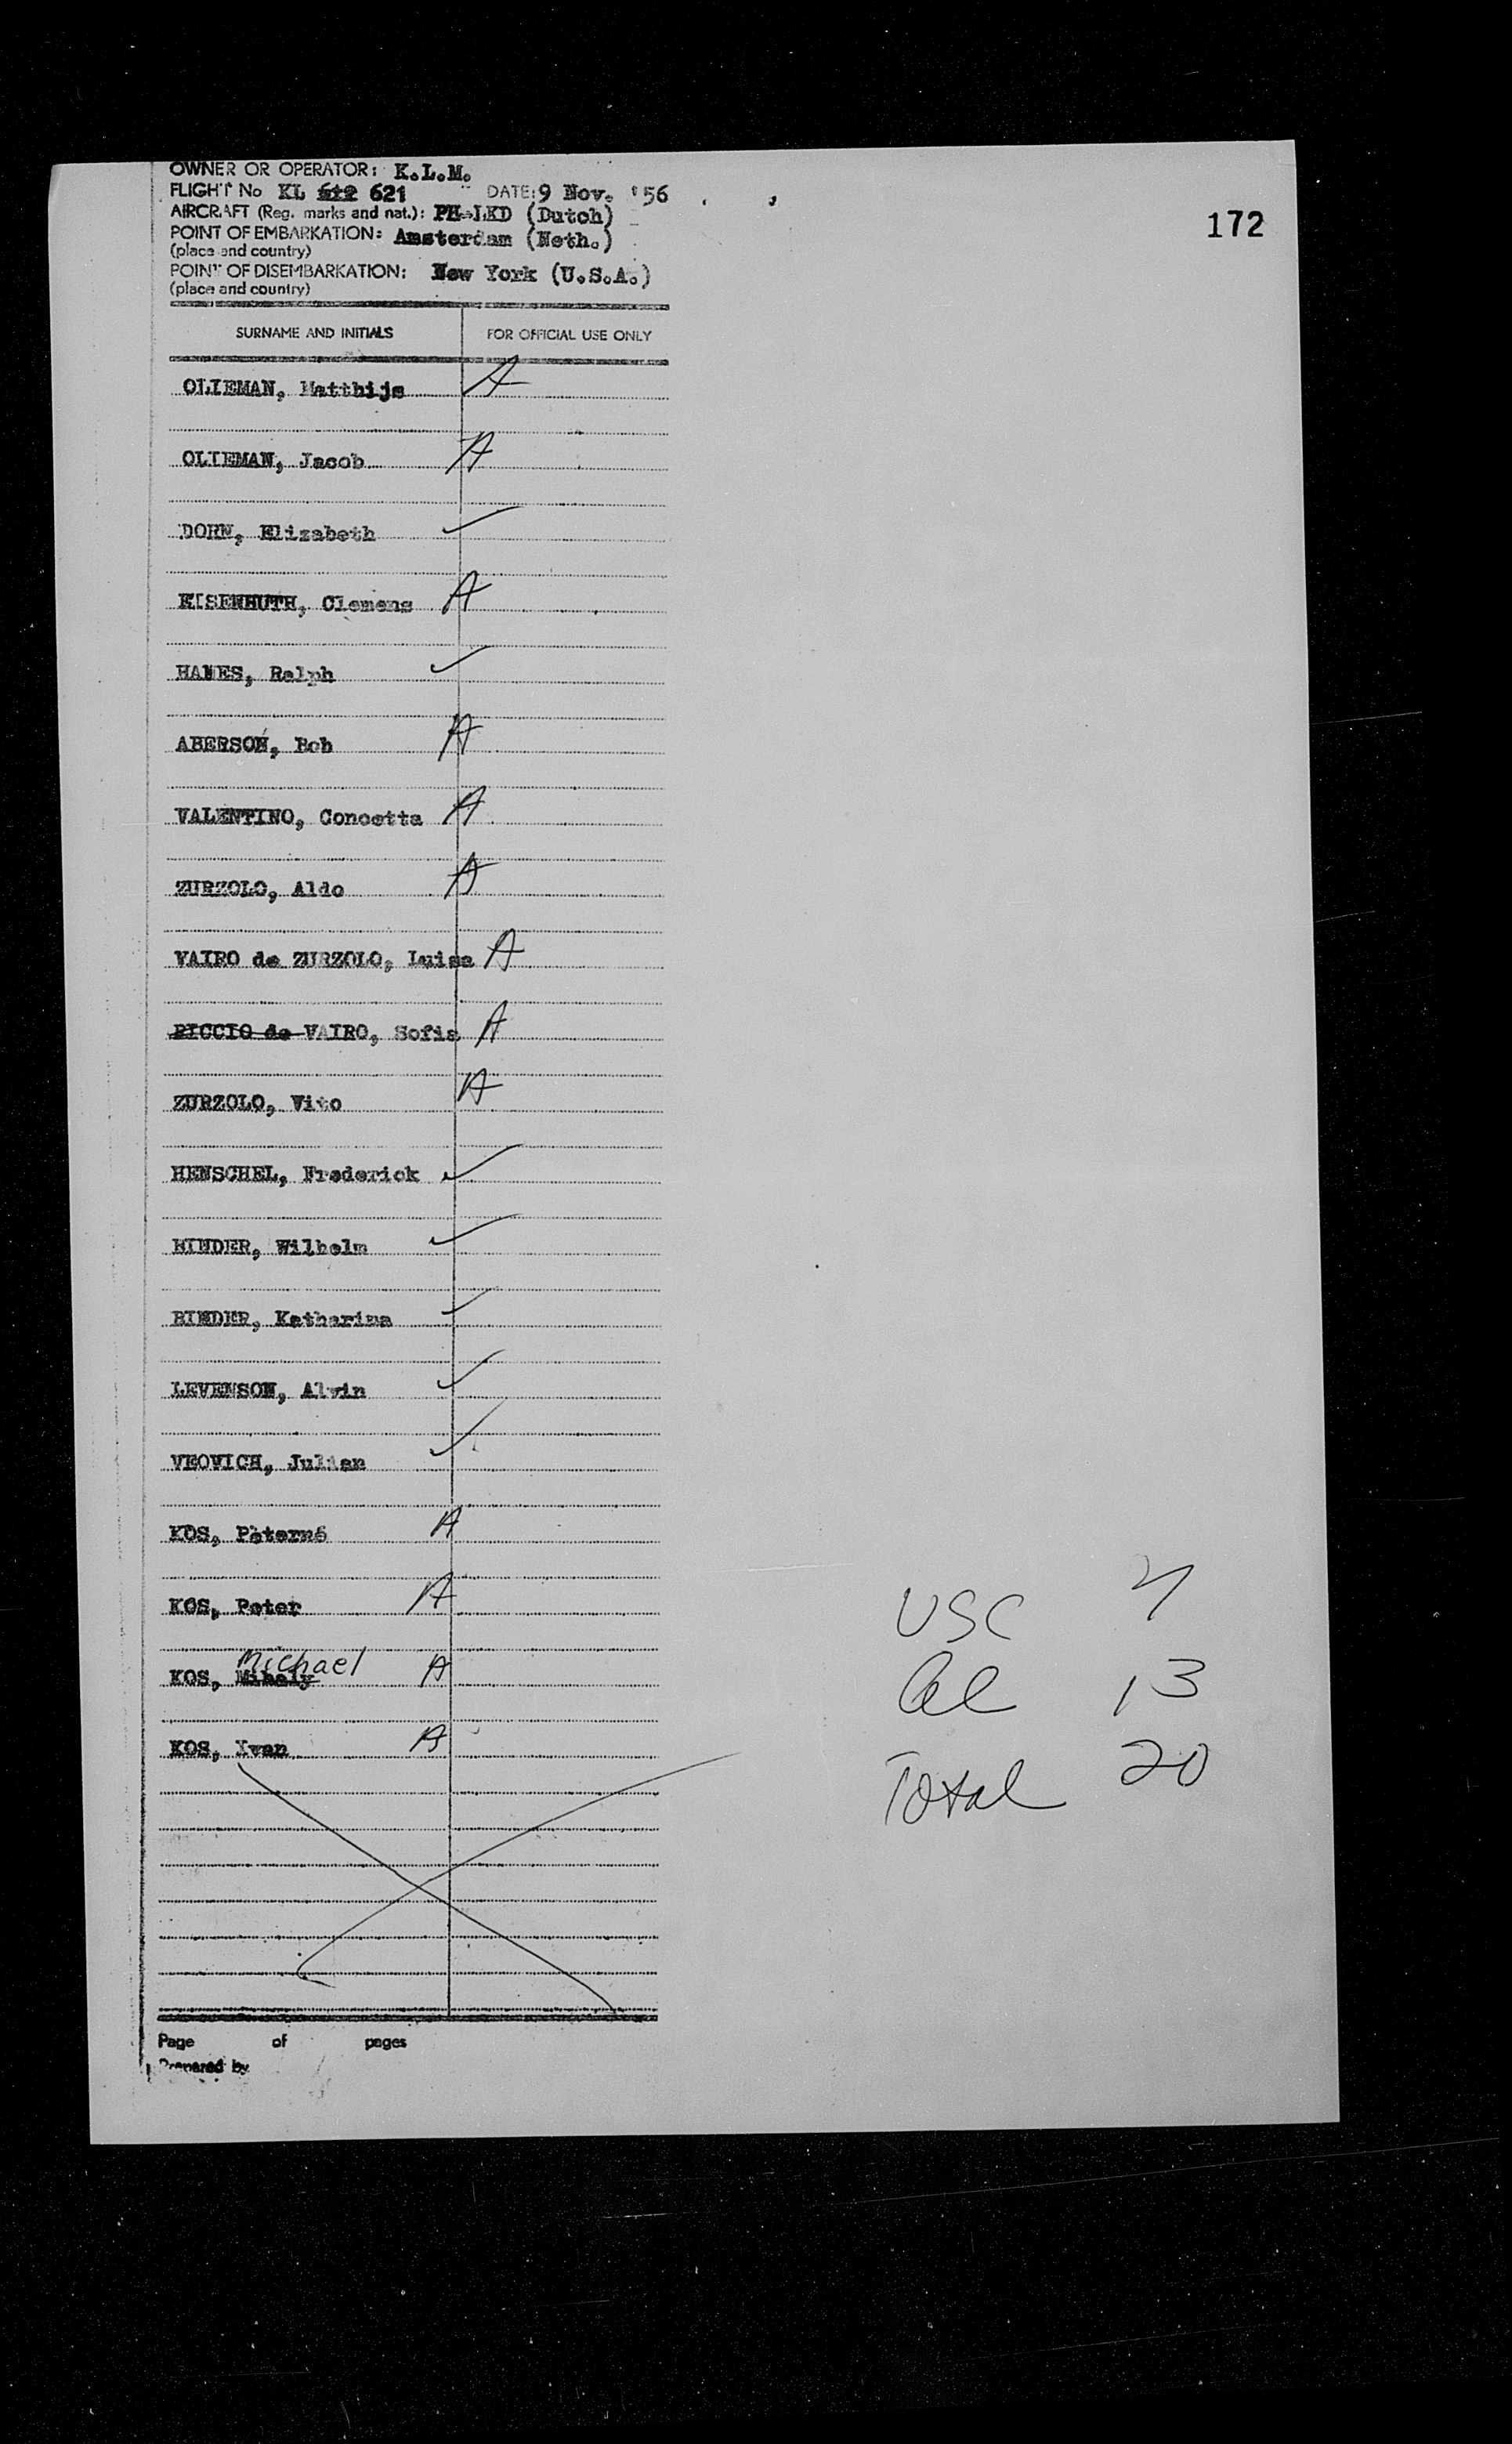 OWNER OR OPERATOR: K.L.M.
FLIGHT No KL 612 621 DATE: 9 Nov. '56
172
AIRCRAFT (Reg. marks and nat.): PH-LKD (Dutch)
POINT OF EMBARKATION: Amsterdam (Neth.)
(place and country)
POINT OF DISEMBARKATION: New York (U.S.A.)
(place and country)
SURNAME AND INITIALS FOR OFFICIAL USE ONLY
OLIEMAN, Matthijs A
OLIEMAN, Jacob A
DORN, Elizabeth ✓
EISENHUTH, Clemens A
HANES, Ralph ✓
ABERSON, Bob A
VALENTINO, Concetta A
ZURZOLO, Aldo A
VAIRO de ZURZOLO, Luisa A
RICCIO de VAIRO, Sofia A
ZURZOLO, Vito A
HENSCHEL, Frederick ✓
BINDER, Wilhelm ✓
BINDER, Katharina ✓
LEVENSON, Alvin ✓
VEOVICH, Julian ✓
KOS, Peterné A
KOS, Peter A
Michael
KOS, Mihaly A
KOS, Ivan A
USC 7
Al 13
Total 20
Page of pages
Prepared by